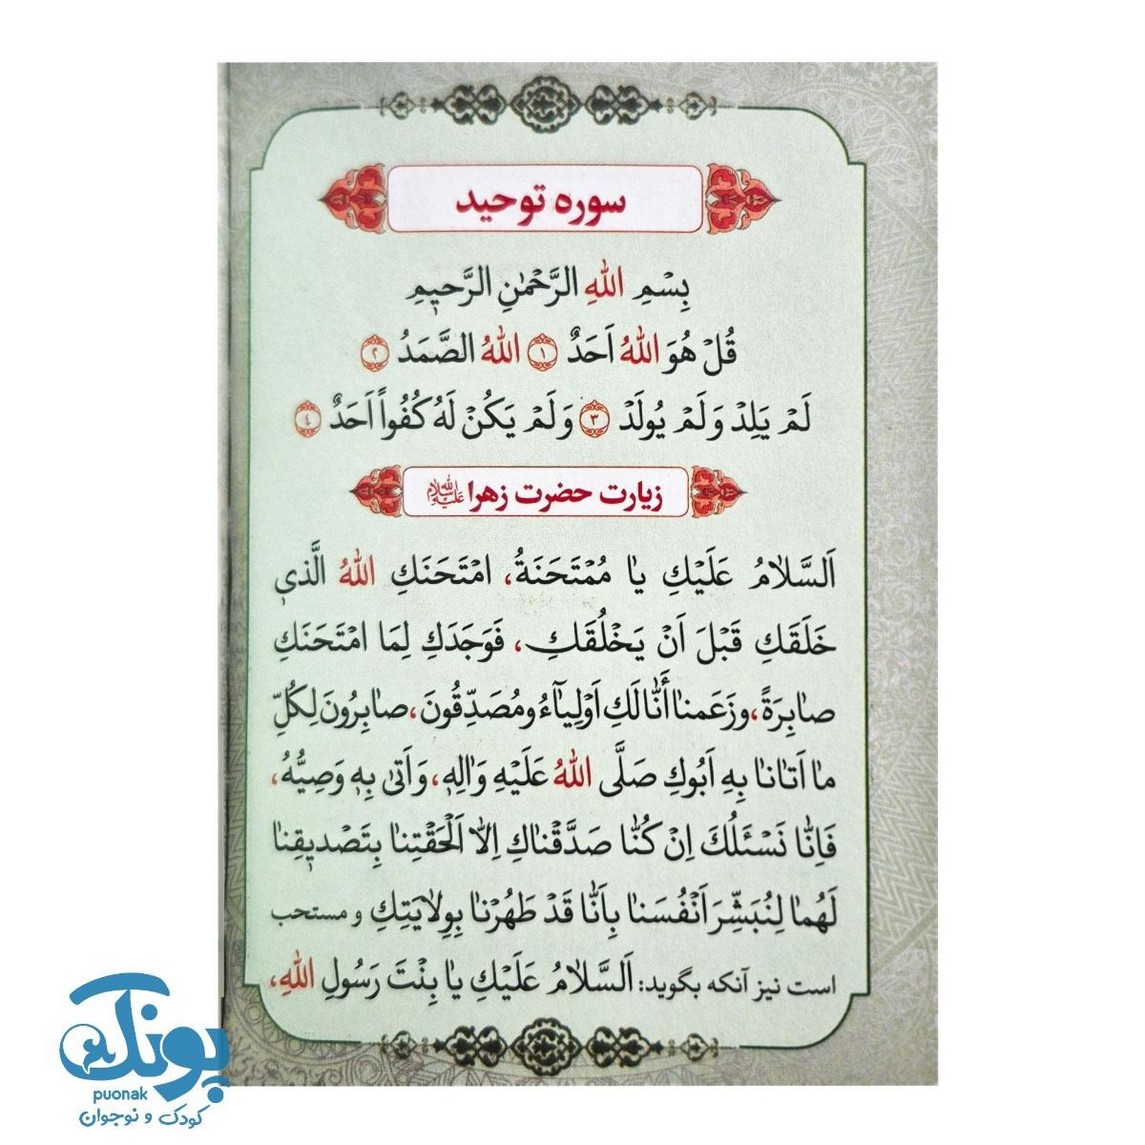 سوره توحید
بِسْمِ اللهِ الرَّحْمٰنِ الرَّحیمِ
قُلْ هُوَ اللهُ اَحَدٌ ۱ اللهُ الصَّمَدُ ۲
لَمْ یَلِدْ وَلَمْ یُولَدْ ۳ وَلَمْ یَکُنْ لَهُ کُفُواً اَحَدٌ ٤
زیارت حضرت زهرا علیهاالسلام
اَلسَّلامُ عَلَیْكِ یا مُمْتَحَنَةُ، امْتَحَنَكِ اللهُ الَّذی
خَلَقَكِ قَبْلَ اَنْ یَخْلُقَكِ، فَوَجَدَكِ لِمَا امْتَحَنَكِ
صابِرَةً، وزَعَمنا أَنّا لَكِ اَوْلِیآءُ ومُصَدِّقُونَ، صابِرُونَ لِکُلِّ
ما اَتانا بِهِ اَبُوكِ صَلَّی اللهُ عَلَیْهِ وَالِهِ، وَاَتیٰ بِهِ وَصِیُّهُ،
فَاِنّا نَسْئَلُكَ اِنْ کُنّا صَدَّقْناكِ اِلاّ اَلْحَقْتِنا بِتَصْدیقِنا
لَهُما لِنُبَشِّرَ اَنْفُسَنا بِاَنّا قَدْ طَهُرْنا بِوِلایَتِكِ و مستحب
است نیز آنکه بگوید: اَلسَّلامُ عَلَیْكِ یا بِنْتَ رَسُولِ اللهِ،
پونک
puonak
کودک و نوجوان